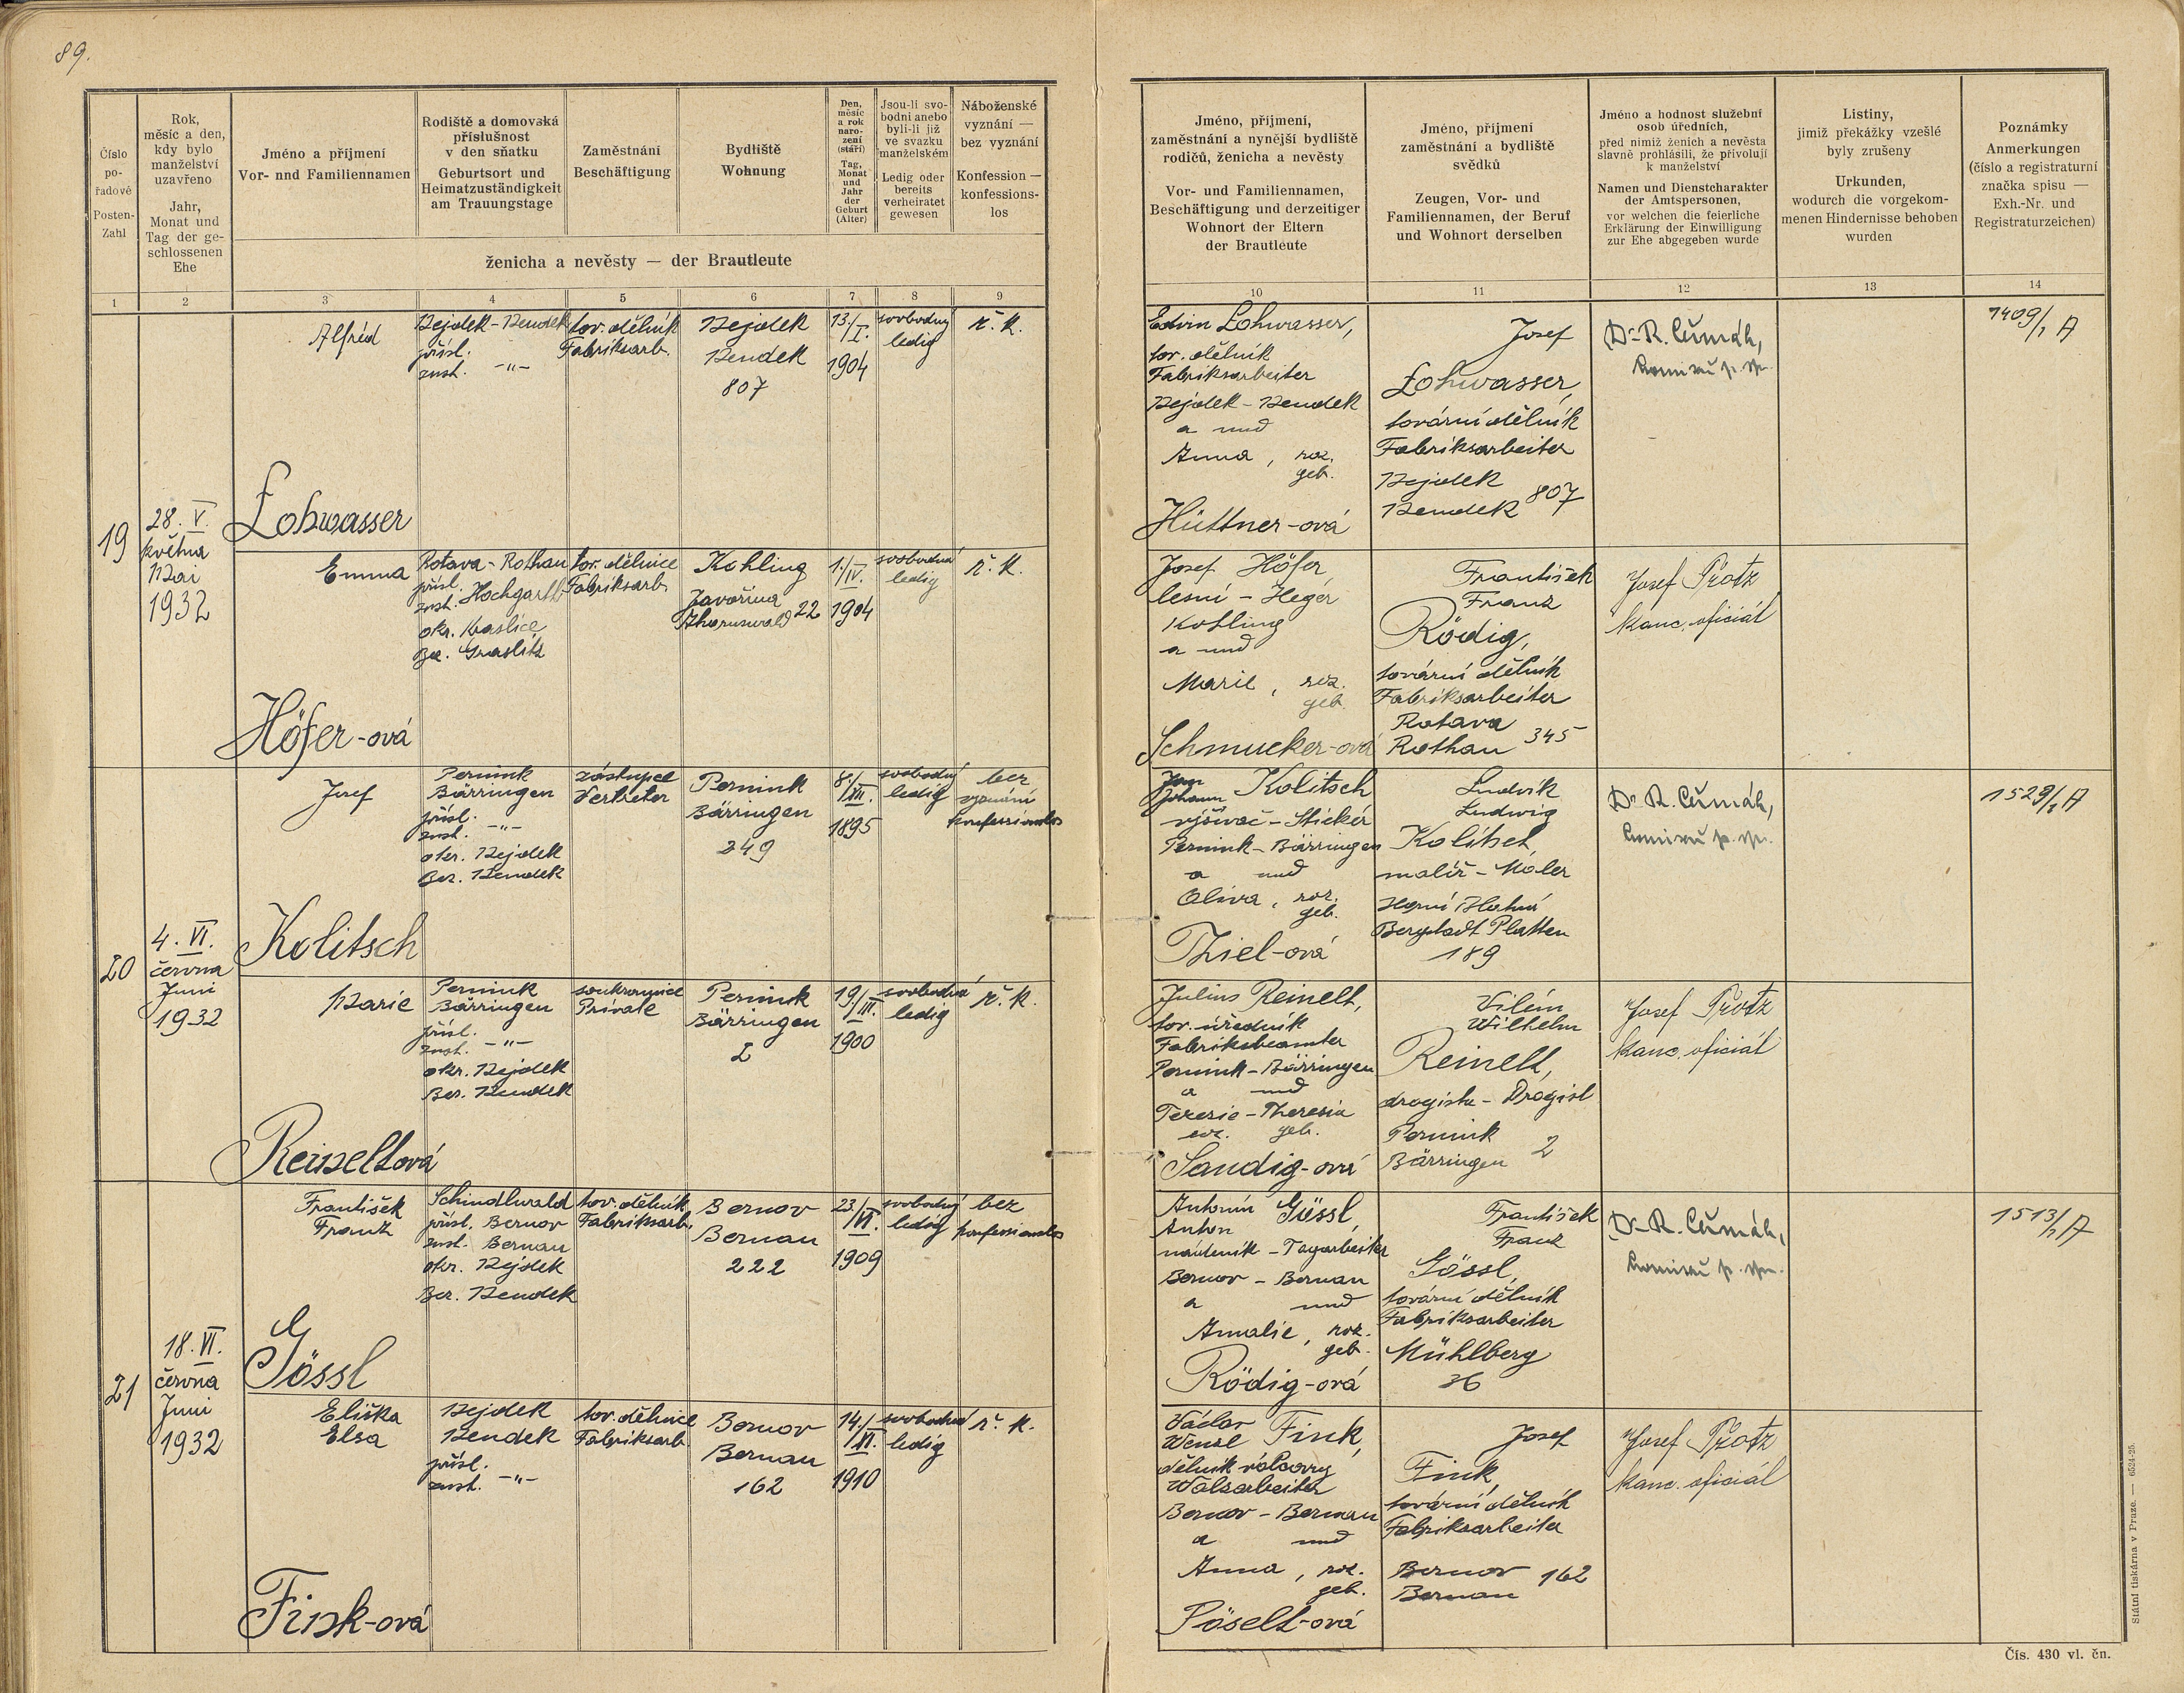 89.
Číslo
po-
řadové
Posten-
Zahl
Rok,
měsíc a den,
kdy bylo
manželství
uzavřeno
Jahr,
Monat und
Tag der ge-
schlossenen
Ehe
Jméno a příjmení
Vor- und Familiennamen
Rodiště a domovská
příslušnost
v den sňatku
Geburtsort und
Heimatzuständigkeit
am Trauungstage
Zaměstnání
Beschäftigung
Bydliště
Wohnung
Den,
měsíc
a rok
naro-
zení
(stáří)
Tag,
Monat
und
Jahr
der
Geburt
(Alter)
Jsou-li svo-
bodni anebo
byli-li již
ve svazku
manželském
Ledig oder
bereits
verheiratet
gewesen
Náboženské
vyznání —
bez vyznání
Konfession —
konfessions-
los
ženicha a nevěsty — der Brautleute
1 2 3 4 5 6 7 8 9
Jméno, příjmení,
zaměstnání a nynější bydliště
rodičů, ženicha a nevěsty
Vor- und Familiennamen,
Beschäftigung und derzeitiger
Wohnort der Eltern
der Brautleute
Jméno, příjmení
zaměstnání a bydliště
svědků
Zeugen, Vor- und
Familiennamen, der Beruf
und Wohnort derselben
Jméno a hodnost služební
osob úředních,
před nimiž ženich a nevěsta
slavně prohlásili, že přivolují
k manželství
Namen und Dienstcharakter
der Amtspersonen,
vor welchen die feierliche
Erklärung der Einwilligung
zur Ehe abgegeben wurde
Listiny,
jimiž překážky vzešlé
byly zrušeny
Urkunden,
wodurch die vorgekom-
menen Hindernisse behoben
wurden
Poznámky
Anmerkungen
(číslo a registraturní
značka spisu —
Exh.-Nr. und
Registraturzeichen)
10 11 12 13 14
19
28. V.
května
Mai
1932
Alfréd
Lohwasser
Nejdek - Neudek
přísl.
zust. -"-
tov. dělník
Fabriksarb.
Nejdek
Neudek
807
13./
I.
1904
svobodný
ledig
ř. k.
Edvin Lohwasser,
tov. dělník
Fabriksarbeiter
Nejdek - Neudek
a und
Anna, roz.
geb.
Hüttner-ová
Josef
Lohwasser,
tovární dělník
Fabriksarbeiter
Nejdek
Neudek 807
Dr. R. Čumák,
1409/1 A
Emma
Höfer-ová
Rotava - Rothau
přísl.
zust. Hochgarth
okr. Kraslice
Bez. Graslitz
tov. dělnice
Fabriksarb.
Kohling
Javořina
Ahornswald 22
1./
IV.
1904
svobodná
ledig
ř. k.
Josef Höfer
lesní - Heger
Kohling
a und
Marie, roz.
geb.
Schmucker-ová
František
Franz
Rödig,
tovární dělník
Fabriksarbeiter
Rotava
Rothau 345
Josef Protz
kanc. oficiál
20
4. VI.
června
Juni
1932
Josef
Kolitsch
Pernink
Bärringen
přísl.
zust. -"-
okr. Nejdek
Bez. Neudek
zástupce
Vertreter
Pernink
Bärringen
249
8./
XII.
1895
svobodný
ledig
bez
vyznání
konfessionslos
Jan
Johann Kolitsch
vyšívač - Sticker
Pernink - Bärringen
a und
Oliva, roz.
geb.
Thiel-ová
Ludvík
Ludwig
Kolitsch,
malíř - Maler
Horní Blatná
Bergstadt Platten
189
Dr. R. Čumák,
1529/1 A
Marie
Reineltová
Pernink
Bärringen
přísl.
zust. -"-
okr. Nejdek
Bez. Neudek
soukromnice
Private
Pernink
Bärringen
2
19/
III.
1900
svobodná
ledig
ř. k.
Julius Reinelt,
tov. úředník
Fabriksbeamter
Pernink - Bärringen
a und
Terezie - Theresia
roz. geb.
Sandig-ová
Vilém
Wilhelm
Reinelt,
drogista - Drogist
Pernink
Bärringen 2
Josef Protz
kanc. oficiál
21
18. VI.
června
Juni
1932
František
Franz
Gössl
Schindlwald
přísl. Bernov
zust. Bernau
okr. Nejdek
Bez. Neudek
tov. dělník
Fabriksarb.
Bernov
Bernau
222
23./
VI.
1909
svobodný
ledig
bez
konfessionslos
Antonín Gössl,
Anton
nádeník - Tagarbeiter
Bernov - Bernau
a und
Amalie, roz.
geb.
Rödig-ová
František
Franz
Gössl,
tovární dělník
Fabriksarbeiter
Mühlberg
36
Dr. R. Čumák,
1513/1 A
Eliška
Elsa
Fink-ová
Nejdek
Neudek
přísl.
zust. -"-
tov. dělnice
Fabriksarb.
Bernov
Bernau
162
14./
VI.
1910
svobodná
ledig
ř. k.
Václav
Wenzl Fink,
dělník válcovny
Walzarbeiter
Bernov - Bernau
a und
Anna, roz.
geb.
Pöselt-ová
Josef
Fink,
tovární dělník
Fabriksarbeiter
Bernov 162
Bernau
Josef Protz
kanc. oficiál
Státní tiskárna v Praze. — 6524-25.
Čís. 430 vl. čn.